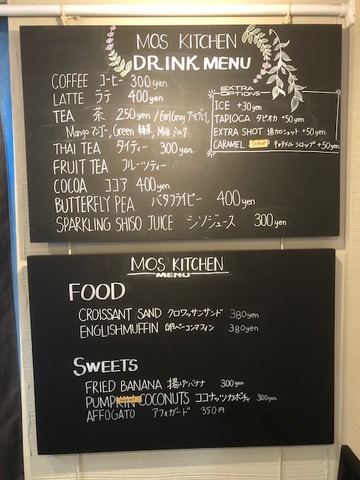 MOS KITCHEN
DRINK MENU
COFFEE コーヒー 300yen
LATTE ラテ 400yen
TEA 茶 250yen / Earl Gray アールグレイ,
Mango マンゴー, Green 緑茶, Milk ミルク
THAI TEA タイティー 300yen
FRUIT TEA フルーツティー
COCOA ココア 400yen
BUTTERFLY PEA バタフライピー 400yen
SPARKLING SHISO JUICE シソジュース 300yen
EXTRA OPTIONS
ICE +30yen
TAPIOCA タピオカ +50yen
EXTRA SHOT 追加ショット +50yen
CARAMEL キャラメルシロップ +50yen
MOS KITCHEN
MENU
FOOD
CROISSANT SAND クロワッサンサンド 380yen
ENGLISHMUFFIN 卵ベーコンマフィン 380yen
SWEETS
FRIED BANANA 揚げバナナ 300yen
PUMPKIN COCONUTS ココナッツカボチャ 300yen
AFFOGATO アフォガード 350円